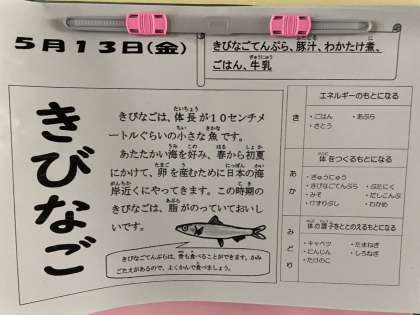 5月13日(金)
きびなごてんぷら、豚汁、わかたけ煮、
ごはん、牛乳
きびなご
きびなごは、体長が10センチメ
ートルぐらいの小さな魚です。
あたたかい海を好み、春から初夏
にかけて、卵を産むために日本の海
岸近くにやってきます。この時期の
きびなごは、脂がのっていておいし
いです。
きびなごてんぷらは、骨も食べることができます。かみ
ごたえがあるので、よくかんで食べましょう。
エネルギーのもとになる
き
・ごはん ・あぶら
・さとう
体をつくるもとになる
あか
・ぎゅうにゅう
・きびなごてんぷら ・ぶたにく
・みそ ・だしこんぶ
・けずりぶし ・わかめ
体の調子をととのえるもとになる
みどり
・キャベツ ・たまねぎ
・にんじん ・しろねぎ
・たけのこ